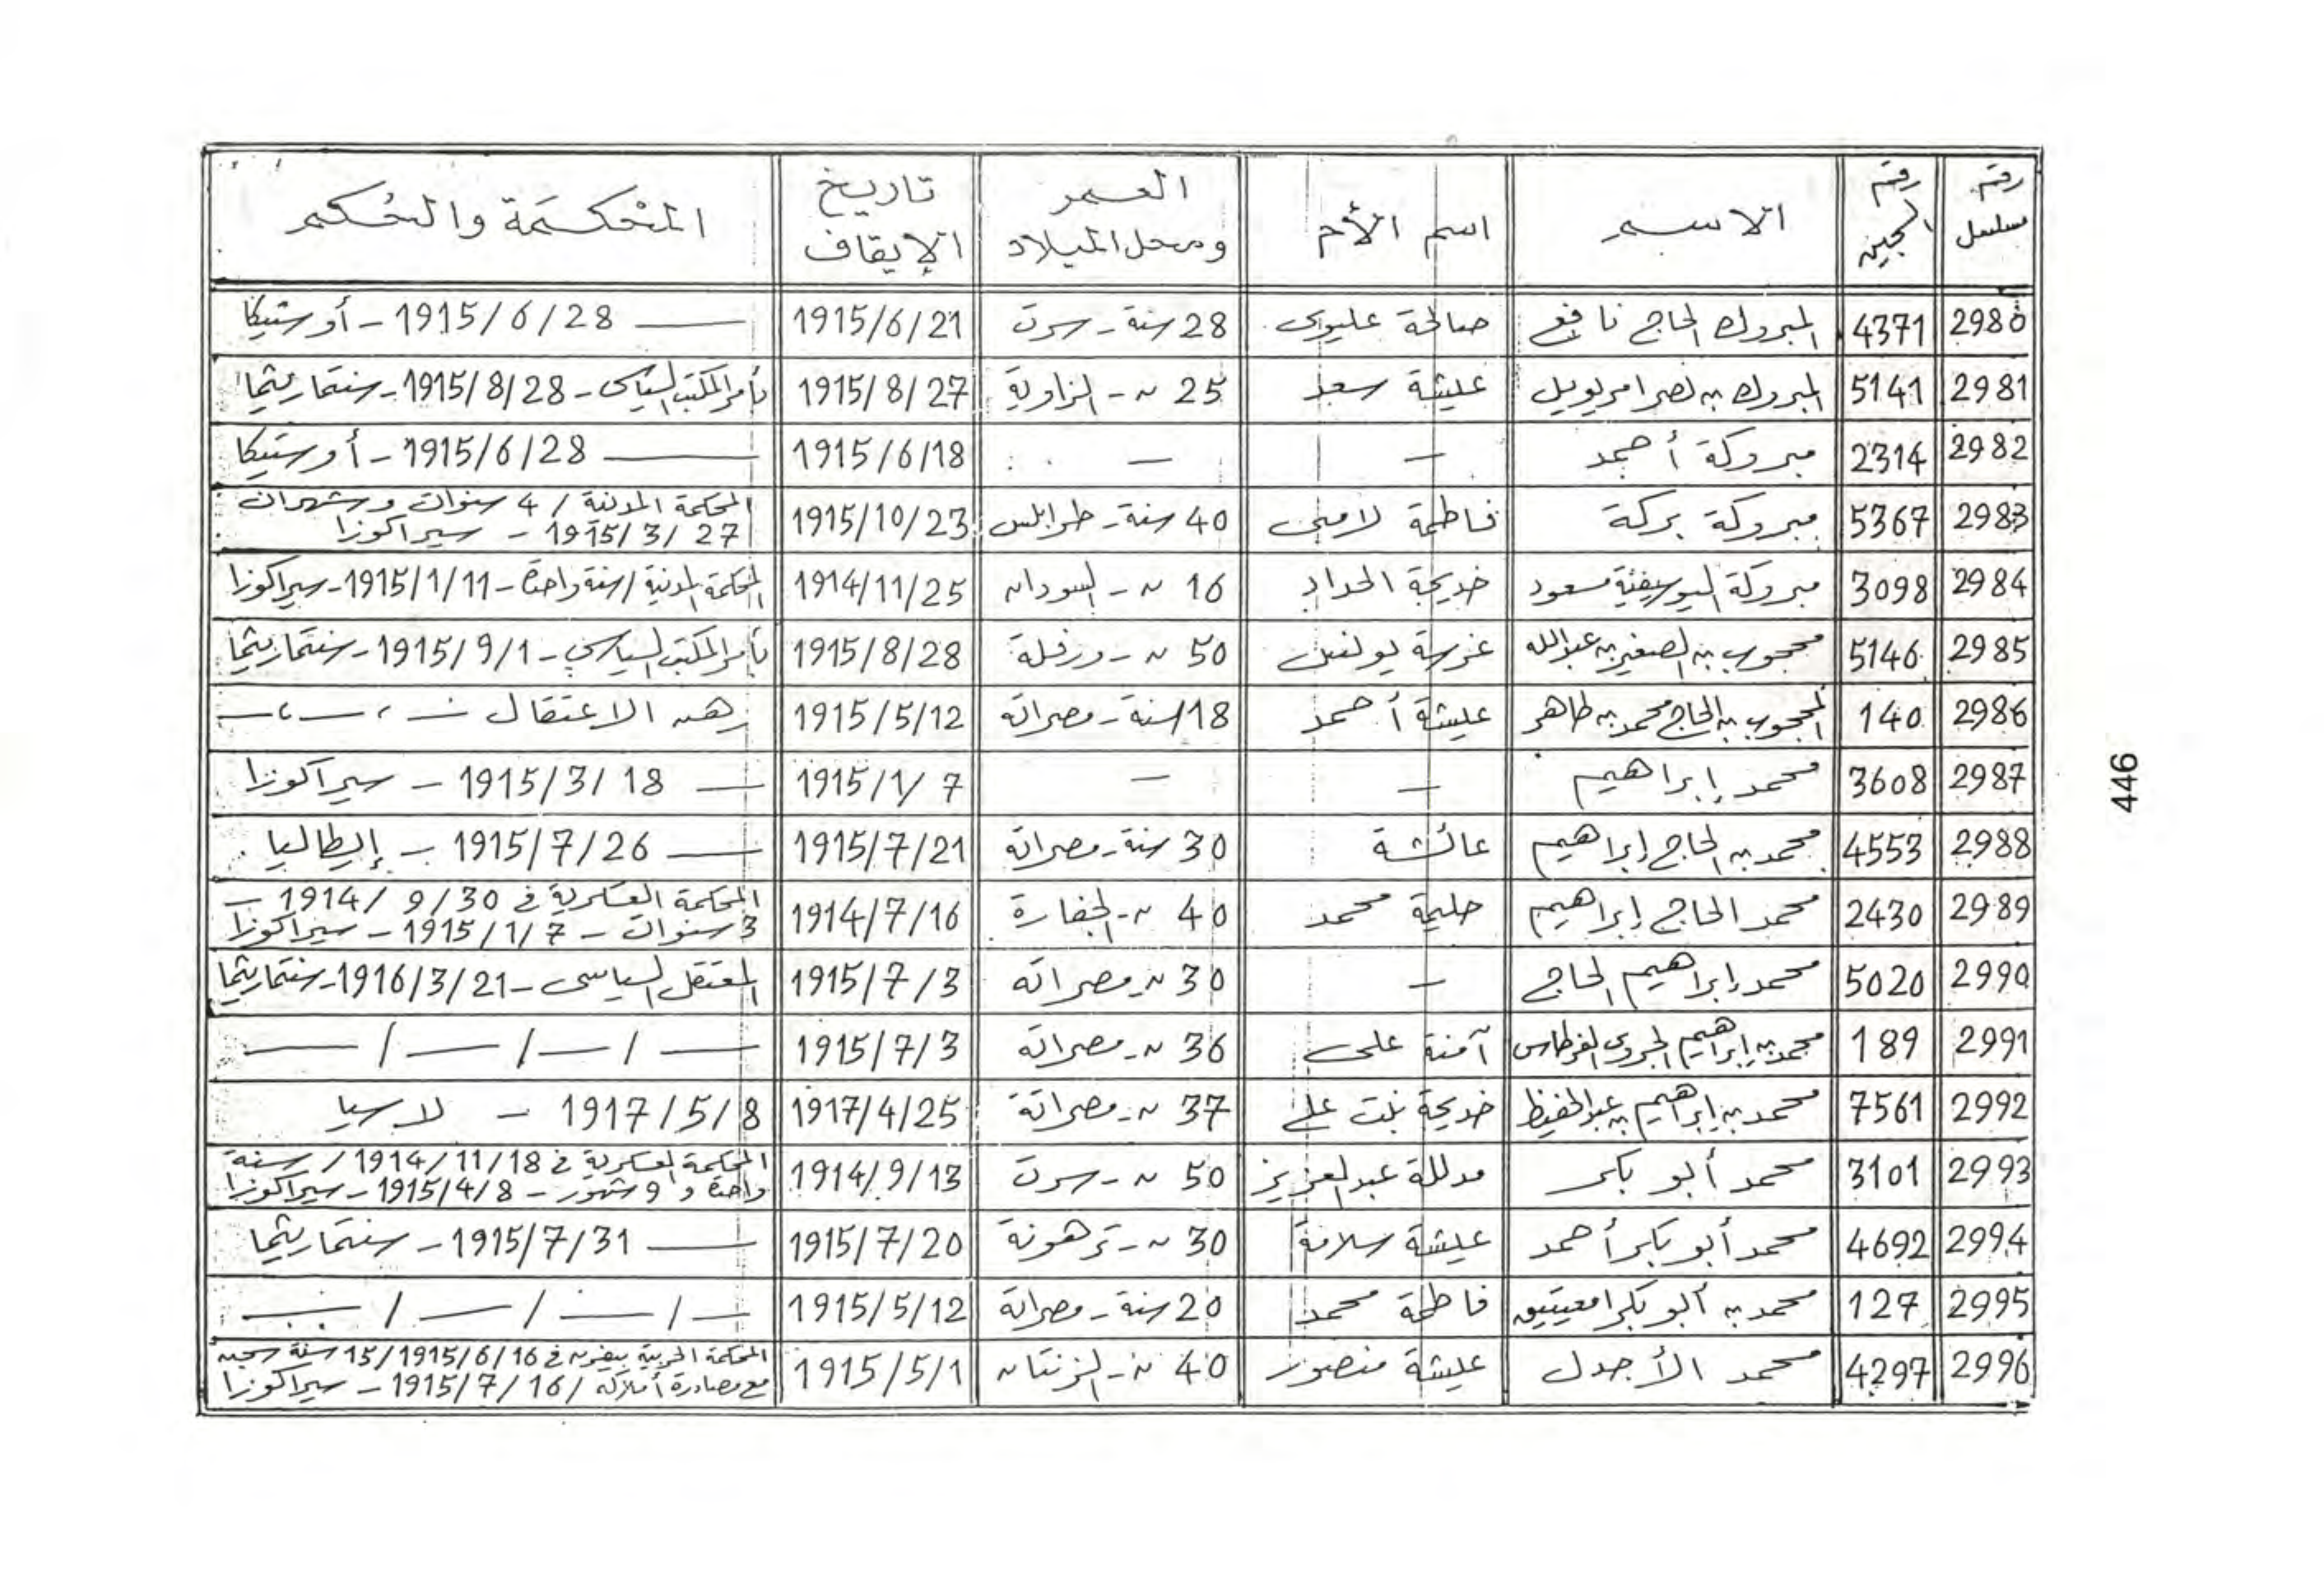 رقم مسلسل | رقم السجين | الاسم | اسم الأم | العمر ومحل الميلاد | تاريخ الإيقاف | المحكمة والحكم
2980 | 4371 | المبروك الحاج نافع | صالحة عليوى | 28 سنة - سرت | 1915/6/21 | — 1915/6/28 - أوستيكا
2981 | 5141 | المبروك بن نصر امريويل | عيشة سعد | 25 ~ - الزاوية | 1915/8/27 | بأمر المكتب السياسى - 1915/8/28 - سنتماريتما
2982 | 2314 | مبروكة أحمد | — | — | 1915/6/18 | — 1915/6/28 - أوستيكا
2983 | 5367 | مبروكة بركة | فاطمة لامين | 40 سنة - طرابلس | 1915/10/23 | المحكمة المدنية / 4 سنوات وشهران
1915/3/27 - سيراكوزا
2984 | 3098 | مبروكة اليوسيفية مسعود | خديجة الحداد | 16 ~ - السودان | 1914/11/25 | المحكمة المدنية / سنة واحدة - 1915/1/11 - سيراكوزا
2985 | 5146 | محجوب بن الصغير بن عبدالله | غرسة | 50 ~ - ورفلة | 1915/8/28 | بأمر المكتب السياسي - 1915/9/1 - سنتماريتما
2986 | 140 | المحجوب بن الحاج محمد بن طاهر | عيشة أحمد | 18 سنة - مصراته | 1915/5/12 | رهن الاعتقال — ، — ، —
2987 | 3608 | محمد إبراهيم | — | — | 1915/1/7 | — 1915/3/18 - سيراكوزا
2988 | 4553 | محمد بن الحاج إبراهيم | عائشة | 30 سنة - مصراتة | 1915/7/21 | — 1915/7/26 - إيطاليا
2989 | 2430 | محمد الحاج إبراهيم | حليمة محمد | 40 ~ - الجفارة | 1914/7/16 | المحكمة العسكرية في 1914/9/30 -
3 سنوات - 1915/1/7 - سيراكوزا
2990 | 5020 | محمد إبراهيم الحاج | — | 30 ~ - مصراته | 1915/7/3 | المعتقل السياسى - 1916/3/21 - سنتماريتما
2991 | 189 | محمد بن إبراهيم الجروى القرطاس | آمنة على | 36 ~ - مصراتة | 1915/7/3 | — / — / — / —
2992 | 7561 | محمد بن إبراهيم بن عبدالحفيظ | خديجة بنت علي | 37 ~ - مصراتة | 1917/4/25 | 1917/5/8 - لاسيا
2993 | 3101 | محمد أبو بكر | مدللة عبد العزيز | 50 ~ - سرت | 1914/9/13 | المحكمة العسكرية في 1914/11/18 / سنة
واحدة و 9 شهور - 1915/4/8 - سيراكوزا
2994 | 4692 | محمد أبو بكر أحمد | عيشة سلامة | 30 ~ - ترهونة | 1915/7/20 | — 1915/7/31 - سنتماريتما
2995 | 127 | محمد بن أبو بكر امعيتيق | فاطمة محمد | 20 سنة - مصراتة | 1915/5/12 | — / — / — / —
2996 | 4297 | محمد الأجدل | عيشة منصور | 40 ~ - الزنتان | 1915/5/1 | المحكمة الحربية بيفرن في 1915/6/16 / 15 سنة سجن
مع مصادرة أملاكه / 1915/7/16 - سيراكوزا
446